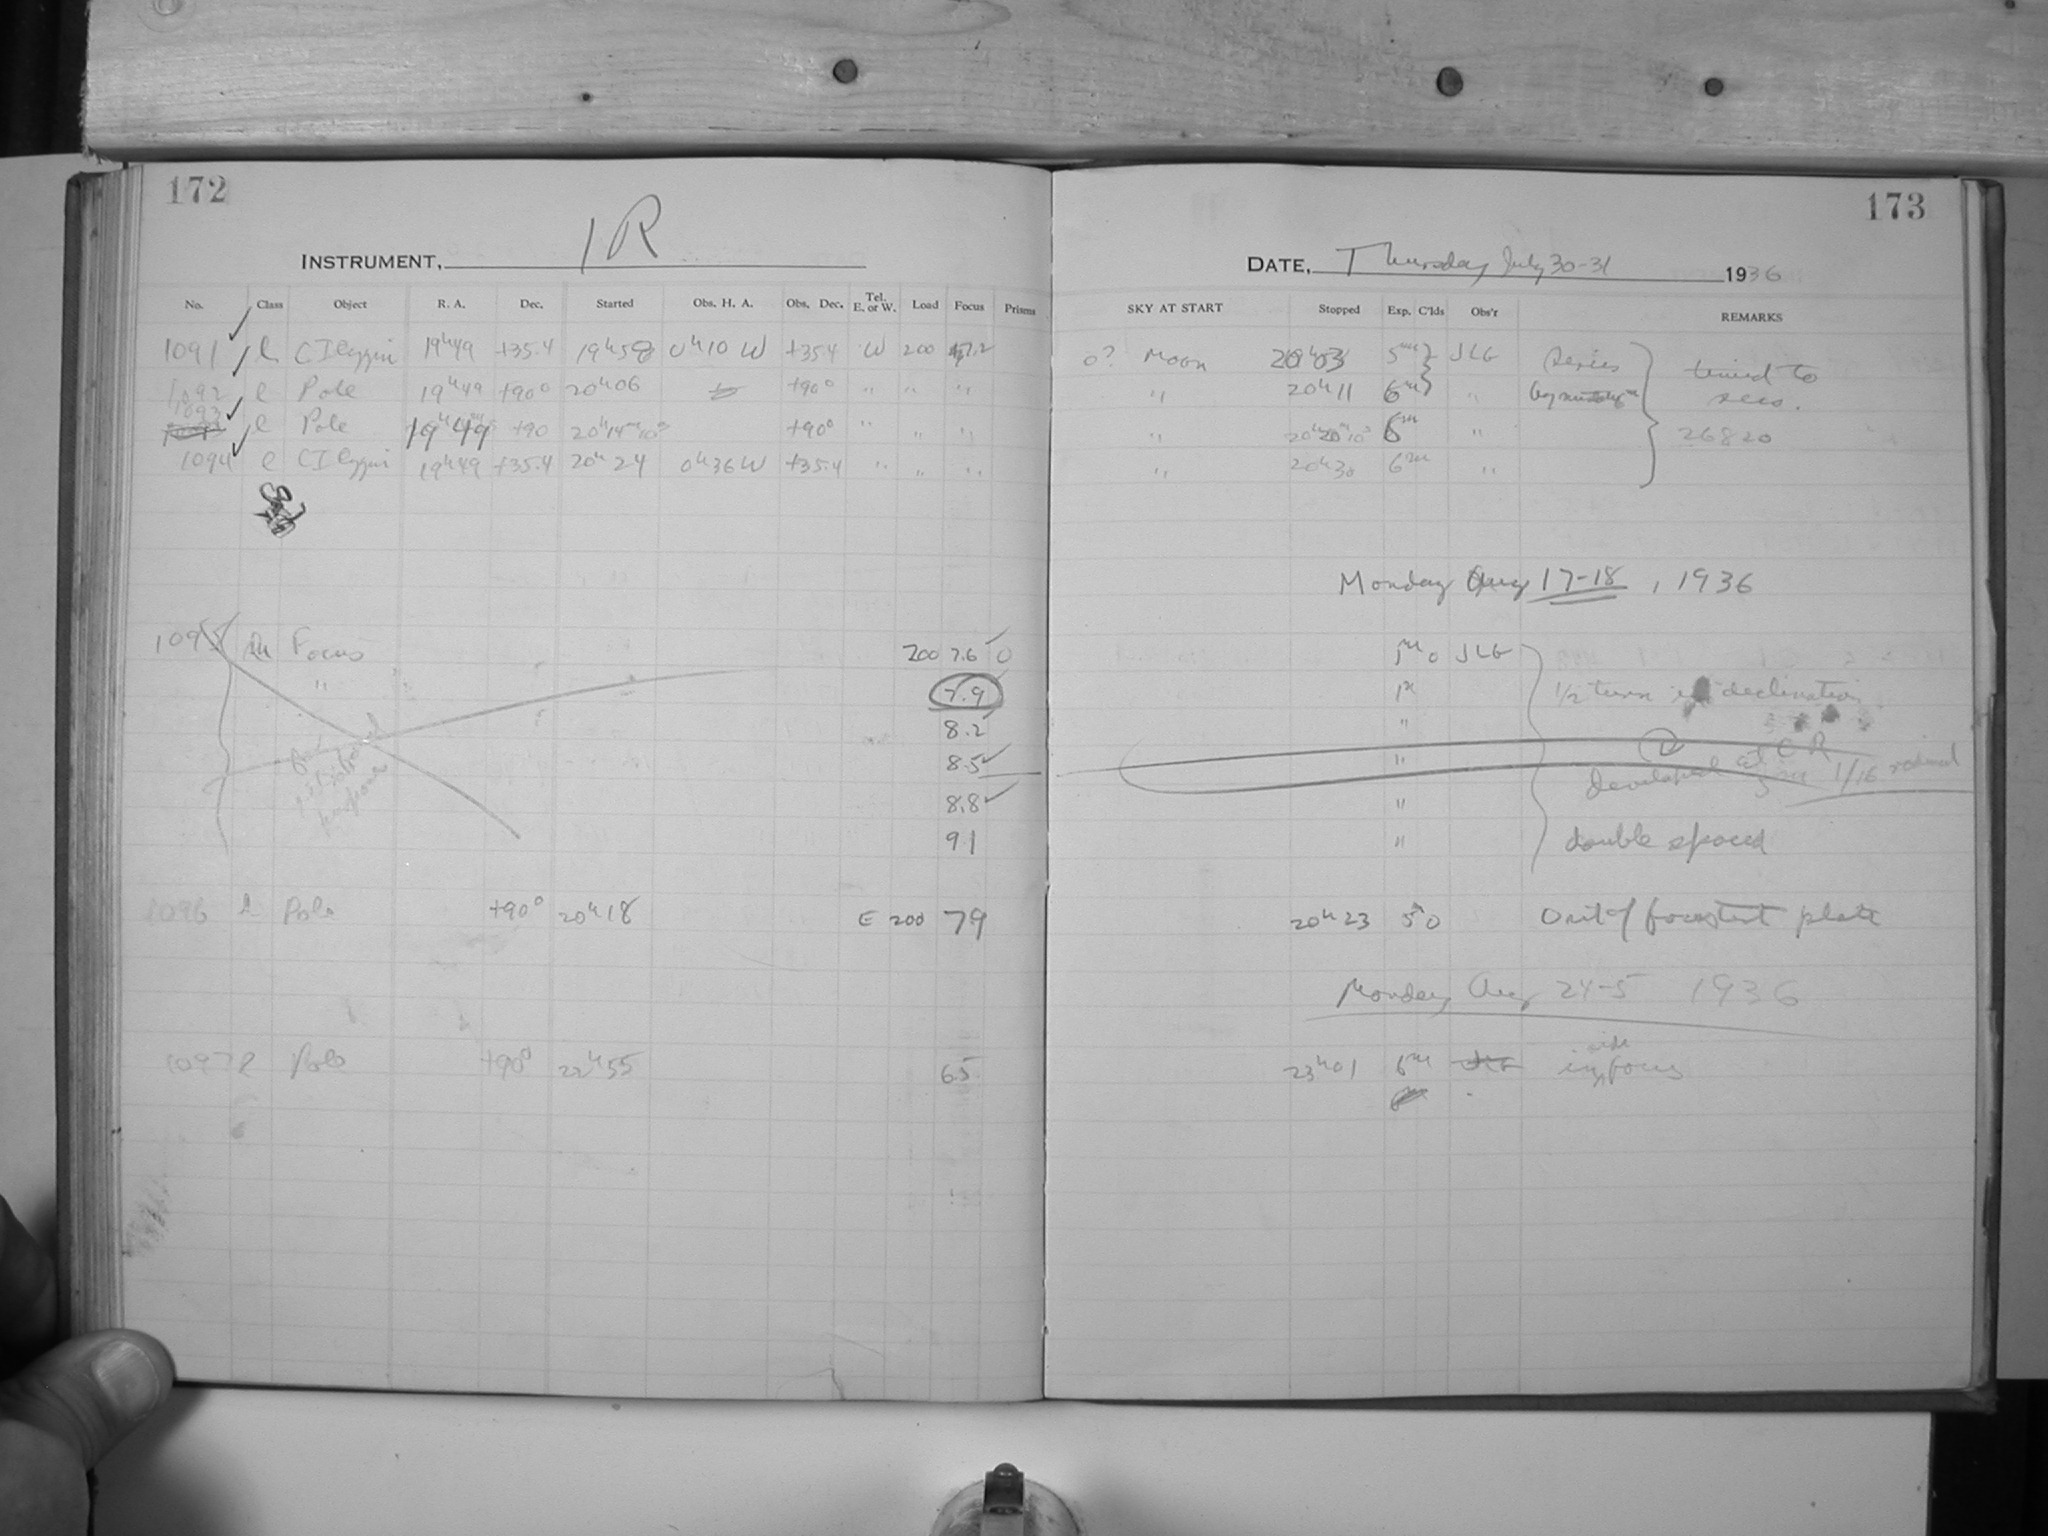 172
INSTRUMENT, 1R
No. Class Object R. A. Dec. Started Obs. H. A. Obs. Dec. Tel. E. or W. Load Focus Prisms
1091 l C I Cygni 19h49 +35.4 19h58 0h10 W +354 W 200 7.2
1092 l Pole 19h49 +90° 20h06 +90° " " "
1093 l Pole 19h49m +90 20h14m10s +90° " " "
1094 l C I Cygni 19h49 +35.4 20h24 0h36W +35.4 " " "
1095 Focus 200 7.6 0
" 7.9
8.2
8.5
8.8
9.1
1096 l Pole +90° 20h18 E 200 79
1097 l Pole +90° 22h55 6.5
173
DATE, Thursday July 30-31 1936
SKY AT START Stopped Exp. C'lds Obs'r REMARKS
0? Moon 20h03 5m JLG Series timed to
" 20h11 6m " secs.
" 20h20m10s 6m " 26820
" 20h30 6m "
Monday Aug 17-18, 1936
1m 0 JLG
1m 1/2 turn in declination
"
" developed at 1/16
"
" double spaced
20h23 5m 0 Out of focus test plate
Monday Aug 24-5 1936
23h01 6m focus